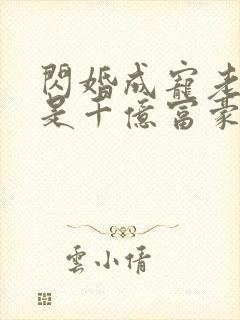 閃婚成寵老
是千億富豪
雲小倩